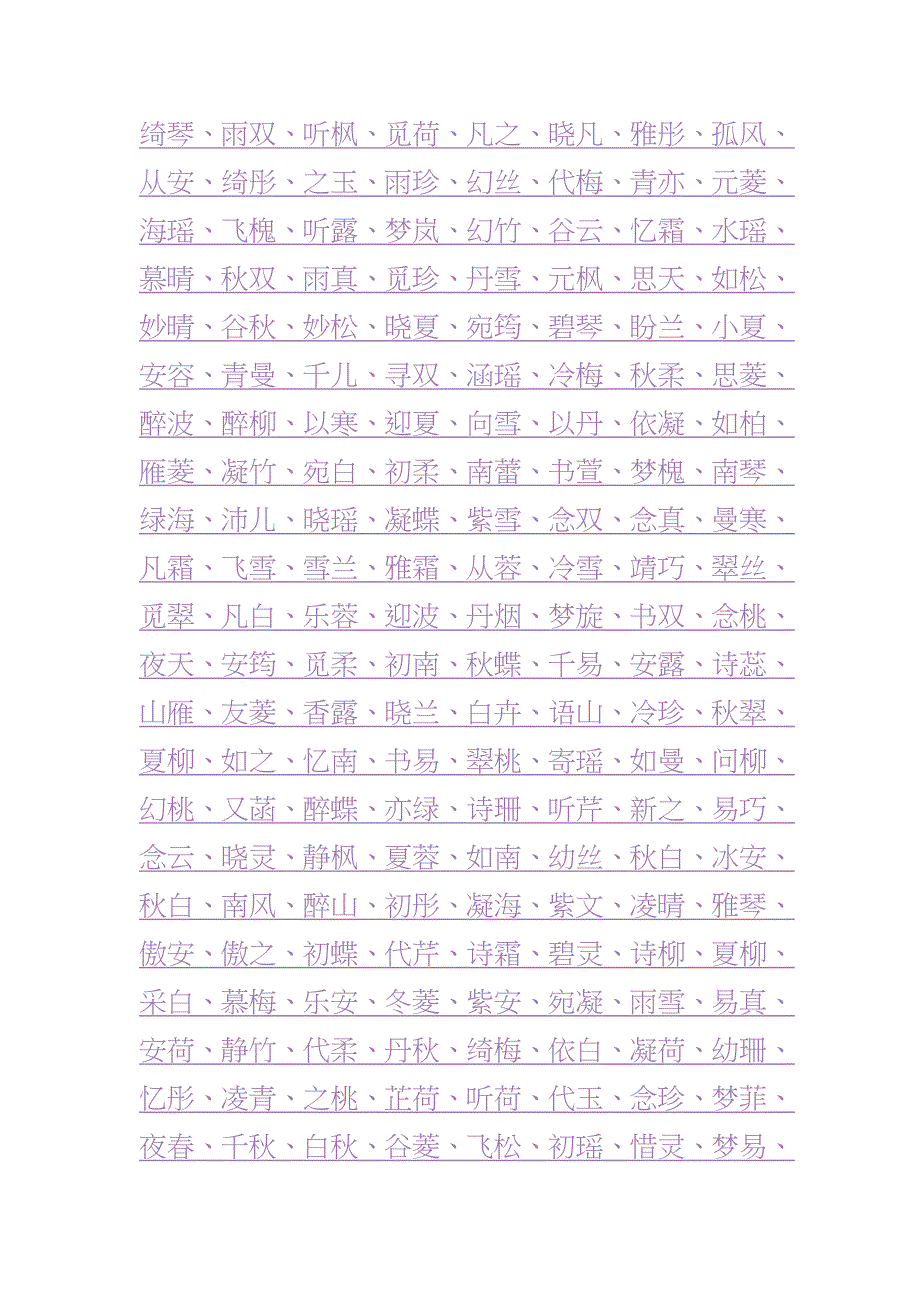 绮琴、雨双、听枫、觅荷、凡之、晓凡、雅彤、孤风、
从安、绮彤、之玉、雨珍、幻丝、代梅、青亦、元菱、
海瑶、飞槐、听露、梦岚、幻竹、谷云、忆霜、水瑶、
慕晴、秋双、雨真、觅珍、丹雪、元枫、思天、如松、
妙晴、谷秋、妙松、晓夏、宛筠、碧琴、盼兰、小夏、
安容、青曼、千儿、寻双、涵瑶、冷梅、秋柔、思菱、
醉波、醉柳、以寒、迎夏、向雪、以丹、依凝、如柏、
雁菱、凝竹、宛白、初柔、南蕾、书萱、梦槐、南琴、
绿海、沛儿、晓瑶、凝蝶、紫雪、念双、念真、曼寒、
凡霜、飞雪、雪兰、雅霜、从蓉、冷雪、靖巧、翠丝、
觅翠、凡白、乐蓉、迎波、丹烟、梦旋、书双、念桃、
夜天、安筠、觅柔、初南、秋蝶、千易、安露、诗蕊、
山雁、友菱、香露、晓兰、白卉、语山、冷珍、秋翠、
夏柳、如之、忆南、书易、翠桃、寄瑶、如曼、问柳、
幻桃、又菡、醉蝶、亦绿、诗珊、听芹、新之、易巧、
念云、晓灵、静枫、夏蓉、如南、幼丝、秋白、冰安、
秋白、南风、醉山、初彤、凝海、紫文、凌晴、雅琴、
傲安、傲之、初蝶、代芹、诗霜、碧灵、诗柳、夏柳、
采白、慕梅、乐安、冬菱、紫安、宛凝、雨雪、易真、
安荷、静竹、代柔、丹秋、绮梅、依白、凝荷、幼珊、
忆彤、凌青、之桃、芷荷、听荷、代玉、念珍、梦菲、
夜春、千秋、白秋、谷菱、飞松、初瑶、惜灵、梦易、